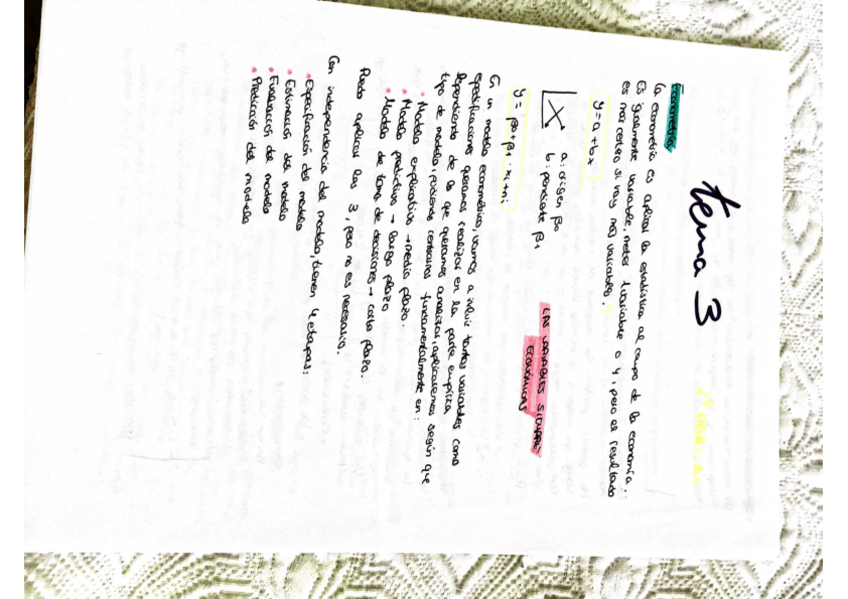 tema 3
Econometría
La econometría es aplicar la estadística al campo de la economía.
Es igualmente variable, meter 1 variable o 4, pero el resultado
es más certero si hay más variables.
y = a + bx
a: origen β0
b: pendiente β1
LAS VARIABLES SIEMPRE
ECONÓMICAS
y = β0 + β1 · xi + ni
En un modelo econométrico, vamos a incluir tantas variables como
especificaciones queramos realizar en la parte empírica
dependiendo de lo que queramos analizar, aplicaremos según que
tipo de modelo, pudiendo centrarnos fundamentalmente en:
• Modelo explicativo → medio plazo.
• Modelo predictivo → largo plazo
• Modelo de toma de decisiones → corto plazo.
Puedo aplicar los 3, pero no es necesario.
Con independencia del modelo, tienen 4 etapas:
• Especificación del modelo
• Estimación del modelo
• Evaluación del modelo
• Predicción del modelo